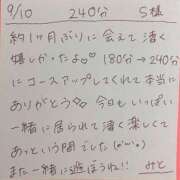 9/10　240分　S様
約1ヶ月ぶりに会えて凄く
嬉しかったよ♡180分→240分
にコースアップしてくれて本当に
ありがとう♡今日もいっぱい
一緒に居られて凄く楽しくて
あっという間でした(*´ω`*)
また一緒に遊ぼうね!!　みと